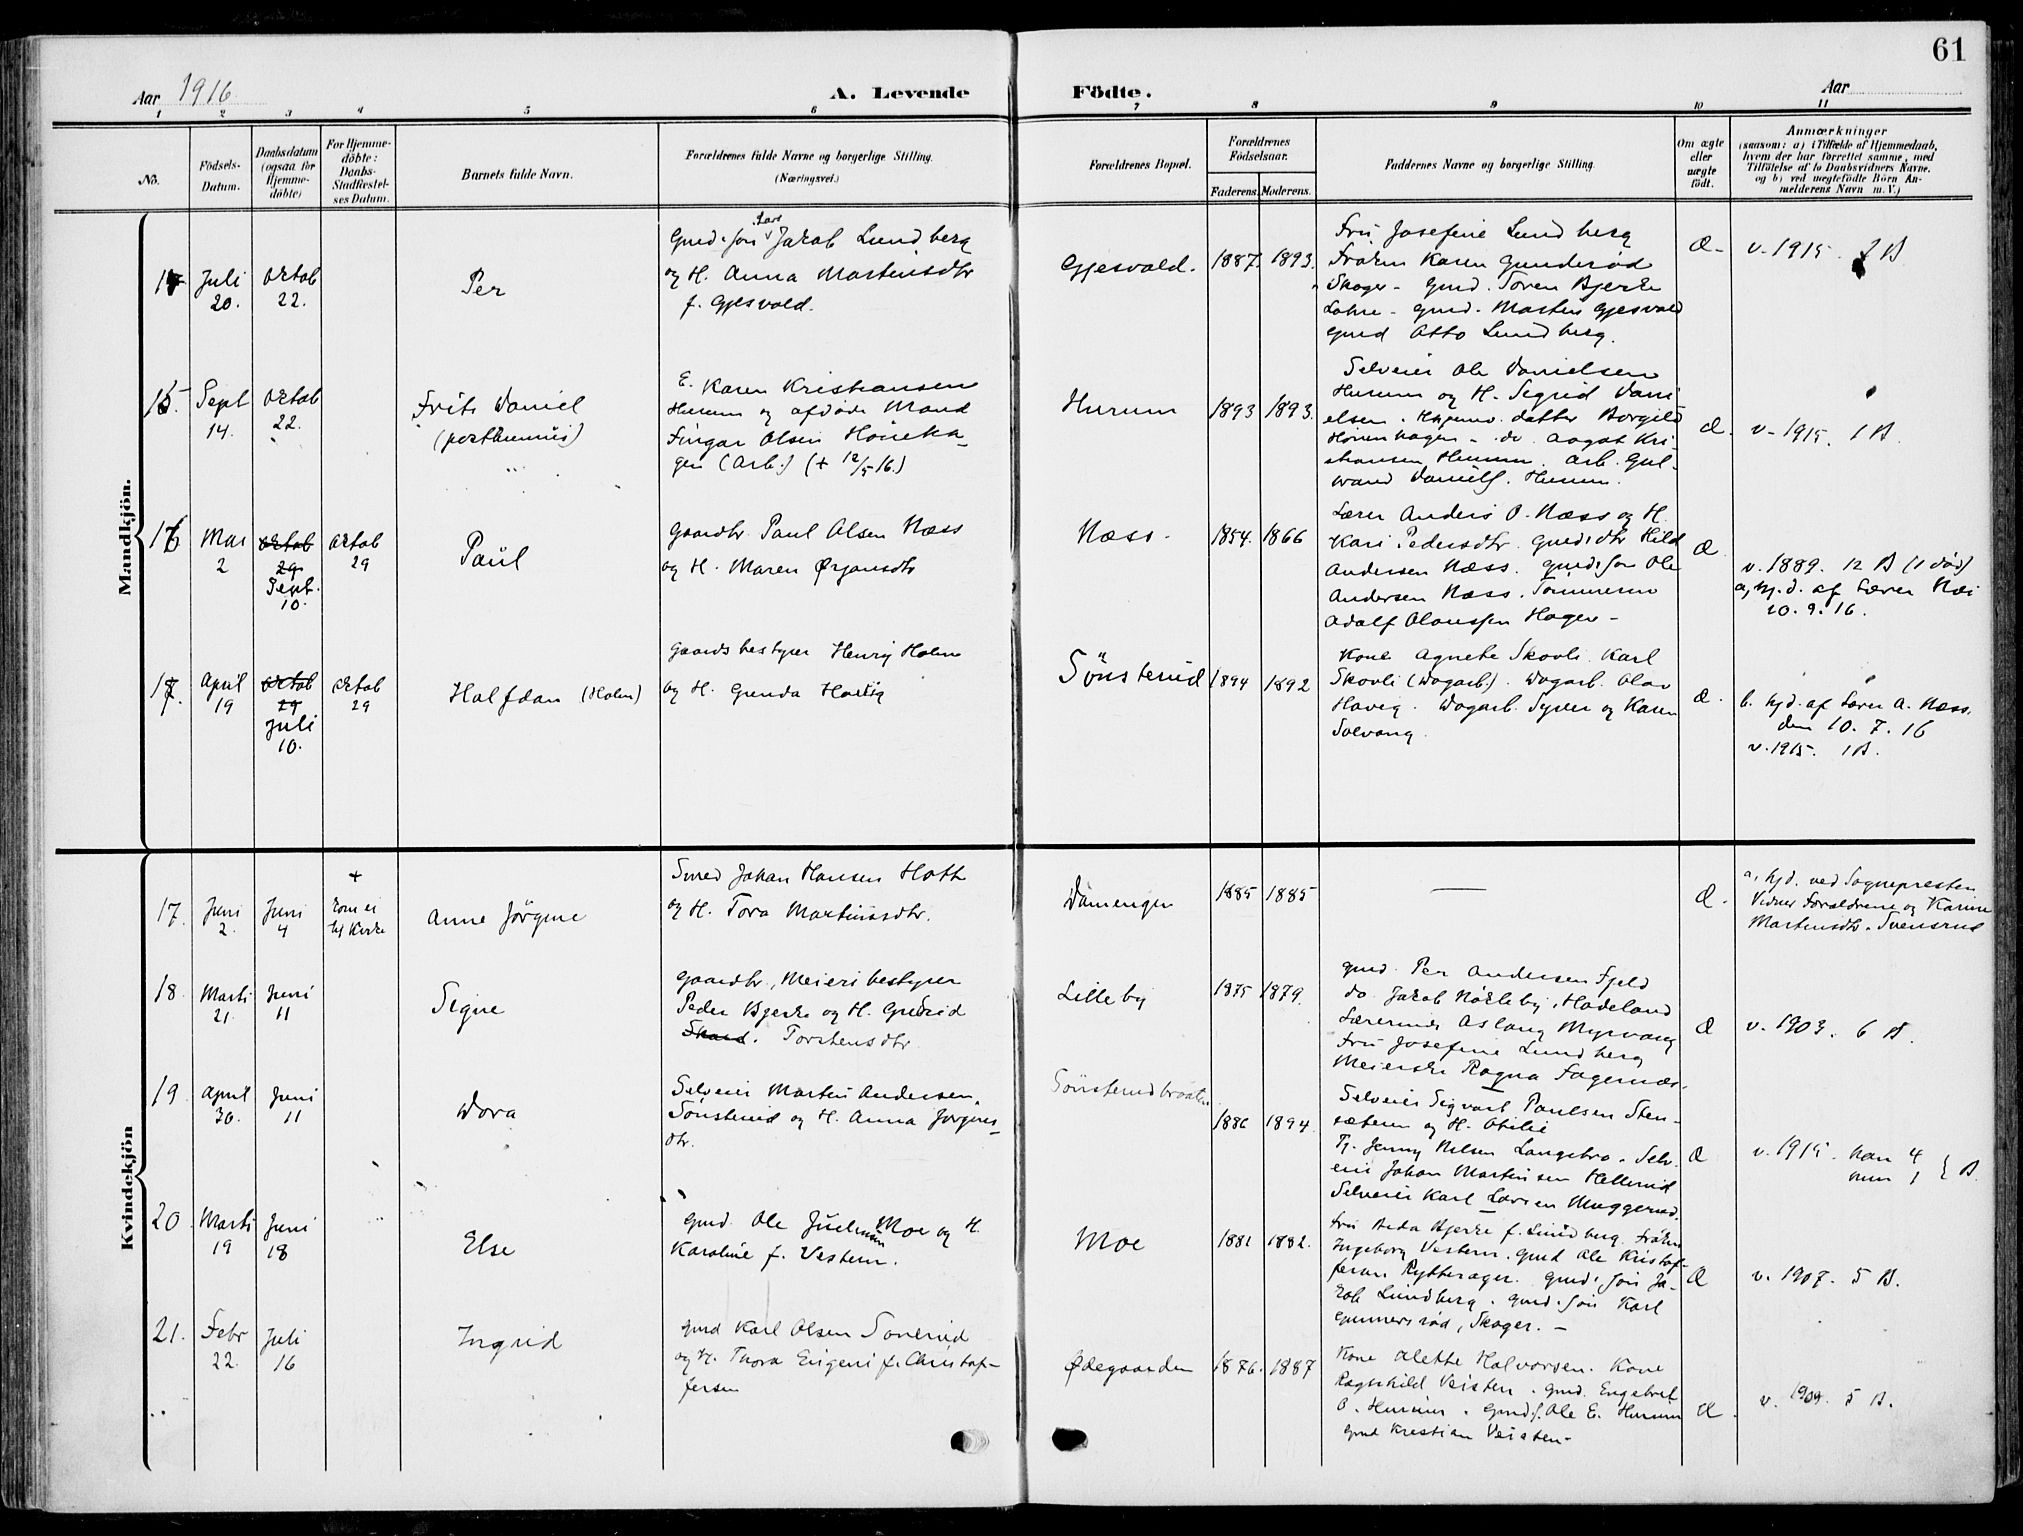 61
Aar 1916
A. Levende
Födte.
Aar
1 2 3 4 5 6 7 8 9 10 11
No.
Födsels-
Datum.
Daabsdatum
(ogsaa for
Hjemme-
döbte)
For Hjemme-
döbte:
Daabs-
Stadfæstel-
ses Datum.
Barnets fulde Navn.
Forældrenes fulde Navne og borgerlige Stilling.
(Næringsvei.)
Forældrenes Bopæl.
Forældrenes
Födselsaar.
Faderens. Moderens.
Faddernes Navne og borgerlige Stilling.
Om ægte
eller
uægte
födt.
Anmærkninger
(saasom: a) i Tilfælde af Hjemmedaab,
hvem der har forrettet samme, med
Tilföielse af to Daabsvidners Navne.
og b) ved uægtefödte Börn An-
melderens Navn m. V.)
Mandkjön.
14
Juli
20.
Oktob
22.
Per
Lars
Gmd. søn Jakob Lundberg
og H. Anna Martinsdtr
f. Gjesvold.
Gjesvold.
1887. 1893.
Fru Josefine Lundberg
Frøken Karen Gunderød
Skoger - Gmd. Toren Bjerke
Lohre - gmd. Martin Gjesvold
gmd Otto Lundberg.
Æ-
v. 1915. 2 B
15.
Sept
14.
Oktob
22.
Frits Daniel
(posthumus)
E. Karen Kristiansen
Hurum og afdøde Mand
Fingar Olsen Höneha-
gen (Arb.) (+ 12/5 16.)
Hurum
1893 1893.
Selveier Ole Danielsen
Hurum og H. Sigrid Dani-
elsen. Hjemv. datter Borgild
Hönenhagen - do. Aagot Kri-
stiansen Hurum. Arb. Gul-
brand Daniels. Hurum.
Æ.
v. 1915. 1 B.
16
Mai
2
Oktob
29
Sept.
10.
Oktob
29
Paul
Gaardbr. Paul Olsen Næss
og H. Maren Ørjansdtr
Næss.
1854. 1866
Lærer Anders O. Næss og H.
Kari Pedersdtr. Gmd.dtr Hild
Andersen Næss. gmd. søn Ole
Andersen Næss. Tömmerm
Adolf Olaussen Hagen -
Æ
v. 1889. 12 B (1 død)
a, hj.d. af Lærer Næs
10. 9. 16.
17.
April
19
Oktob
29
Juli
10.
Oktob
29
Halfdan (Holm)
Gaardsbestyrer Henrij Holm
og H. Gunda Havig
Sönsterud
1894 1892
Kone Agnete Skovli. Karl
Skovli (Dagarb.). Dagarb. Olav
Haveg. Dagarb. Syver og Karen
Solvang.
Æ.
b. hjd. af Lærer A. Næss.
den 10. 7. 16
v. 1915. 1 B.
Kvindekjön
17.
Juni
2.
Juni
4
+
Kom ei
til Kirke
Anne Jörgine
Smed Johan Hansen Hotte
og H. Tora Martinusdtr.
Damengen
1885 1885
—
Æ.
a, hjd. ved Sognepresten
Vidner Forældrene og Karine
Martinsdtr. Svensrud
18.
Marts
21.
Juni
11
Signe
Gaardbr., Meieribestyrer
Peder Bjerke og H. Gudrid
Torstensdtr
Lilleby
1875 1879.
gmd. Per Andersen Fjeld
do. Jakob Nökleby, Hadeland
Lærerinde Aslaug Myrvang
Fru Josefine Lundberg
Meierske Ragna Fagernæs.
Æ
v. 1903. 6 B.
19
April
30.
Juni
11
Dora
Selveier Martin Andersen
Sönsterud og H. Anna Jørgens-
dtr.
Sönsterudbraaten
1886 1894.
Selveier Sigvart Paulsen Sten-
sæteren og H. Otilie
Tj. Jenny Nilsen Langebro. Selv-
eier Johan Martinsen Hellerud
Selveier Karl Larsen Muggerud.
Æ
v. 1915. han 4
hun 1 } B.
20
Marts
19
Juni
18
Else
Gmd. Ole Juelsen Moe og H
Karoline f. Vestern.
Moe
1881 1882.
Fru Beda Bjerke f. Lundberg. Frøken
Ingeborg Vestern. gmd Ole Kristof-
fersen Rytterager. gmd. søn Ja-
kob Lundberg. gmd. søn Karl
Gunnersrød, Skoger. -
Æ
v. 1907. 5 B.
21.
Febr
22.
Juli
16
Ingrid
gmd Karl Olsen Sonerud
og H. Thora Eugeni f. Christof-
fersen
Ødegaarden
1876. 1887
Kone Alette Halvorsen. Kone
Ragnhild Veisten. gmd. Engebret
O. Hurum. gmds. Ole E. Hurum
gmd Kristian Veisten-
Æ.
v. 1909. 5 B.